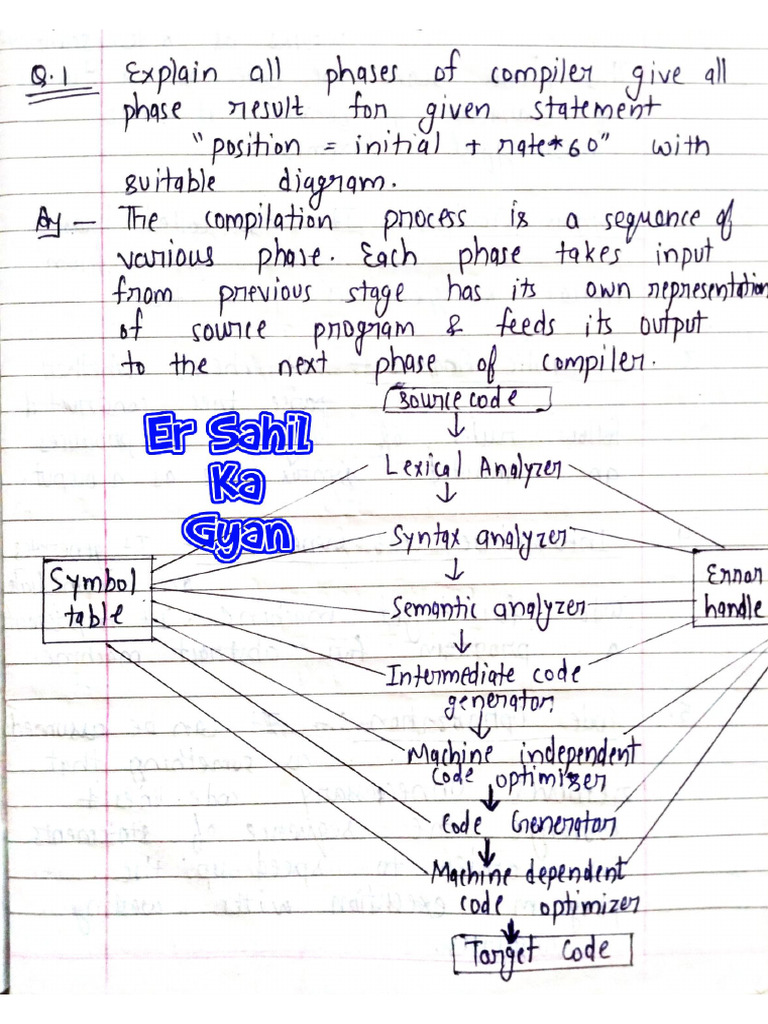 Q.1 Explain all phases of compiler give all
phase result for given statement
"position = initial + rate*60" with
suitable diagram.
Ay – The compilation process is a sequence of
various phase. Each phase takes input
from previous stage has its own representation
of source program & feeds its output
to the next phase of compiler.
Source code
Er Sahil
Ka
Gyan
Lexical Analyzer
Syntax analyzer
Symbol
table
Error
handle
Semantic analyzer
Intermediate code
generator
Machine independent
code optimizer
Code Generator
Machine dependent
code optimizer
Target Code